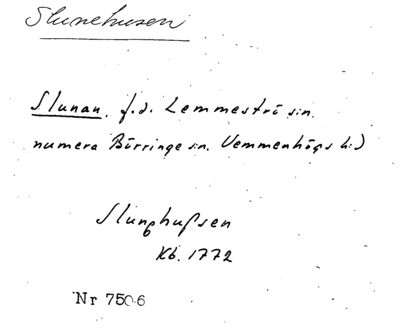 Slunehusen
Slunau, f.d. Lemmeströ sn.
numera Börringe sn. Vemmenhögs hd
Slunghußen
Kb. 1772
Nr 7506